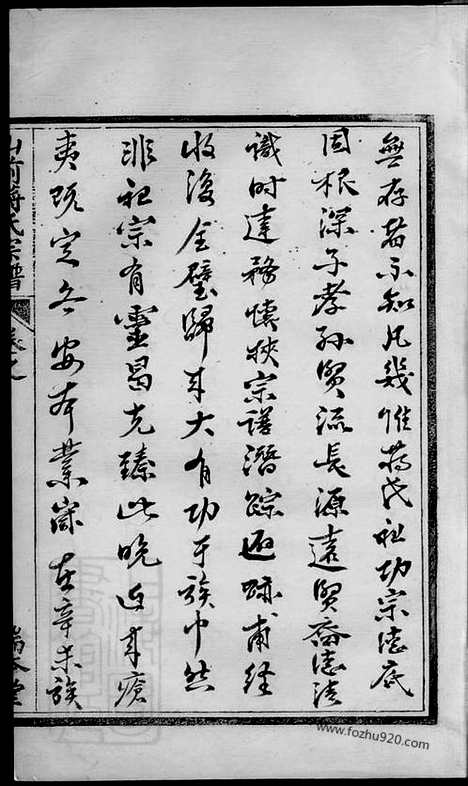 無存者不知凡幾惟蔣氏祖功宗德底
固根深子孝孫賢流長源遠賢裔志清
識時達務懷挾宗譜潛踪遁跡甫經
收復全璧歸來大有功于族中然
非祖宗有靈曷克臻此晩近來瘡
夷既定久安本業歲在辛未族
山前蔣氏宗譜
卷之
堂
www.fozhu920.com